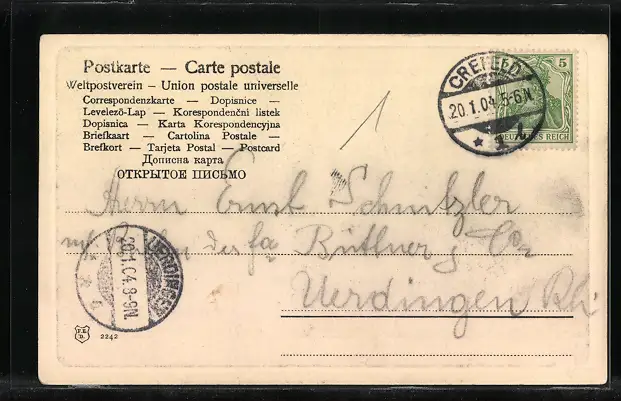 Postkarte — Carte postale
Weltpostverein – Union postale universelle
Correspondenzkarte — Dopisnice —
Levelező-Lap — Korespondenční listek
Dopisnica — Karta Korespondencyjna
Briefkaart — Cartolina Postale —
Brefkort — Tarjeta Postal — Postcard
Дописна карта
ОТКРЫТОЕ ПИСЬМО
CREFELD
20.1.04.5-6N.
* 1
5
DEUTSCHES REICH
1
Herrn Ernst Schnitzler
der fa Büttner & Co
Uerdingen Rh.
UERDINGEN
20.1.04.8-9N.
2242